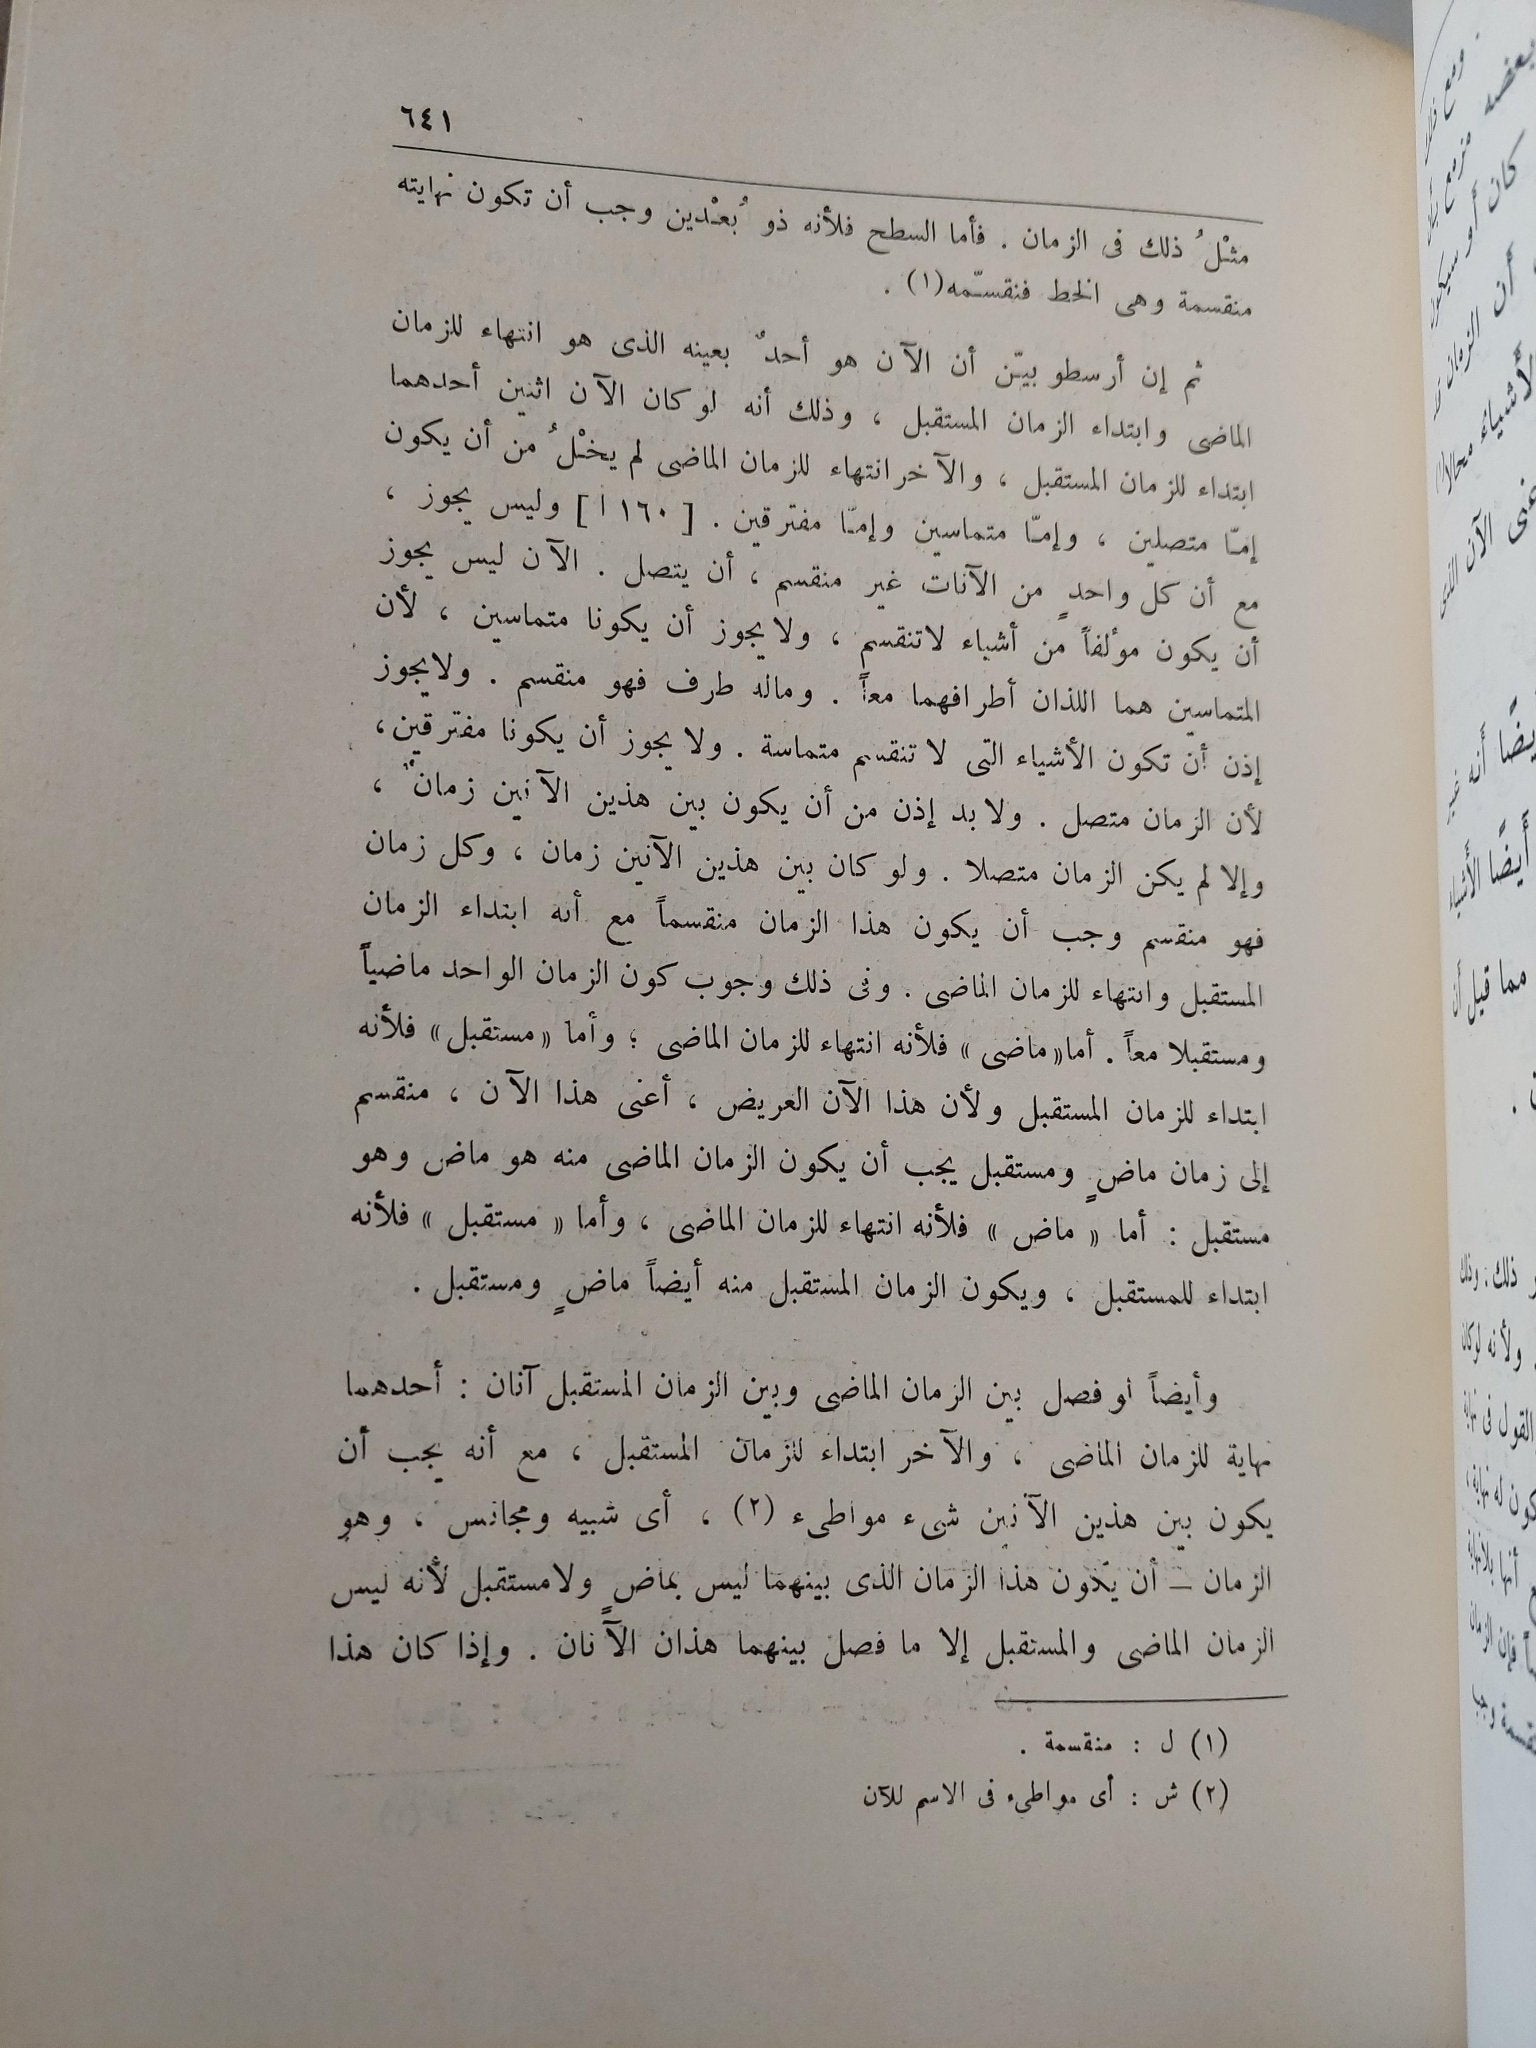 ٦٤١
مثْلُ ذلك فى الزمان . فأما السطح فلأنه ذو بُعْدين وجب أن تكون نهايته
منقسمة وهى الخط فنقسّمه(١) .
ثم إن أرسطو بيّن أن الآن هو أحدٌ بعينه الذى هو انتهاء للزمان
الماضى وابتداء الزمان المستقبل ، وذلك أنه لو كان الآن اثنين أحدهما
ابتداء للزمان المستقبل ، والآخر انتهاء للزمان الماضى لم يخْلُ من أن يكون
إمّا متصلين ، وإمّا متماسين وإمّا مفترقين . [ ١٦٠ ا ] وليس يجوز ،
مع أن كل واحدٍ من الآنات غير منقسم ، أن يتصل . الآن ليس يجوز
أن يكون مؤلفاً من أشياء لاتنقسم ، ولا يجوز أن يكونا متماسين ، لأن
المتماسين هما اللذان أطرافهما معاً . وماله طرف فهو منقسم . ولايجوز
إذن أن تكون الأشياء التى لا تنقسم متماسة . ولا يجوز أن يكونا مفترقين،
لأن الزمان متصل . ولا بد إذن من أن يكون بين هذين الآنين زمان ،
وإلا لم يكن الزمان متصلا . ولو كان بين هذين الآنين زمان ، وكل زمان
فهو منقسم وجب أن يكون هذا الزمان منقسماً مع أنه ابتداء الزمان
المستقبل وانتهاء للزمان الماضى . وفى ذلك وجوب كون الزمان الواحد ماضياً
ومستقبلا معاً . أما «ماضى» فلأنه انتهاء للزمان الماضى ؛ وأما «مستقبل» فلأنه
ابتداء للزمان المستقبل ولأن هذا الآن العريض ، أعنى هذا الآن ، منقسم
إلى زمان ماضٍ ومستقبل يجب أن يكون الزمان الماضى منه هو ماض وهو
مستقبل : أما « ماض » فلأنه انتهاء للزمان الماضى ، وأما « مستقبل » فلأنه
ابتداء للمستقبل ، ويكون الزمان المستقبل منه أيضاً ماضٍ ومستقبل .
وأيضاً لو فصل بين الزمان الماضى وبين الزمان المستقبل آنان : أحدهما
نهاية للزمان الماضى ، والآخر ابتداء للزمان المستقبل ، مع أنه يجب أن
يكون بين هذين الآنين شىء مواطىء (٢) ، أى شبيه ومجانس ، وهو
الزمان – أن يكون هذا الزمان الذى بينهما ليس بماضٍ ولامستقبل لأنه ليس
الزمان الماضى والمستقبل إلا ما فصل بينهما هذان الآنان . وإذا كان هذا
(١) ل : منقسمة .
(٢) ش : أى مواطىء فى الاسم للآن